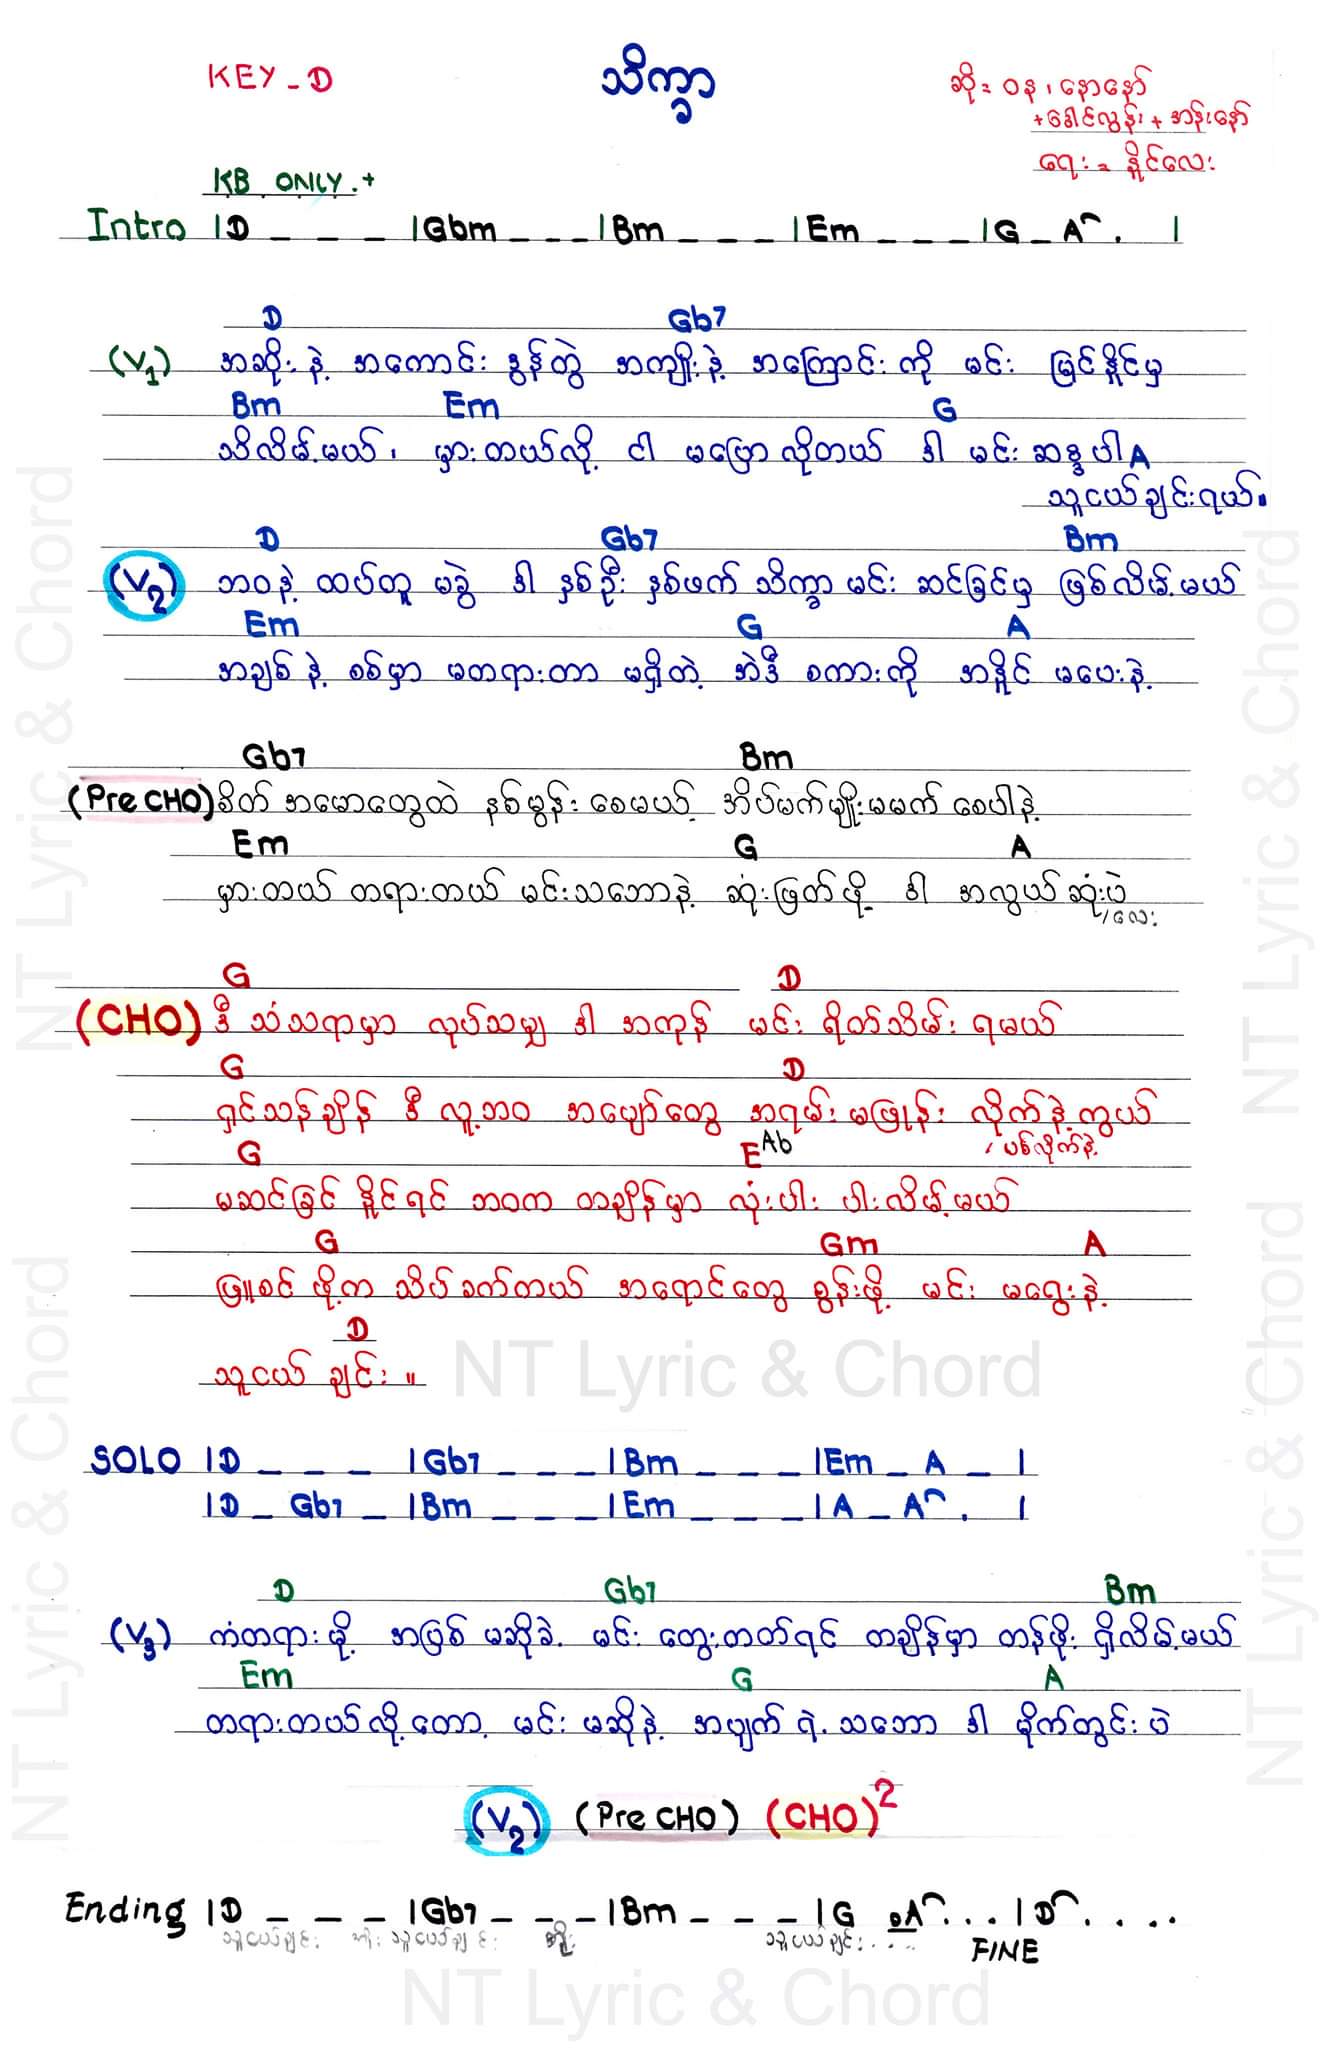 KEY - D
သိက္ခာ
ဆို = ဝန ၊ နောနော်
+ ခေါင်လွန်း + အန်းနော်
ရေး = နိုင်လေး
KB ONLY. +
Intro |D _ _ _ |Gbm _ _ _ |Bm _ _ _ |Em _ _ _ |G _ A⌒ . |
D Gb7
(V1) အဆိုး နဲ့ အကောင်း ဒွန်တွဲ အကျိုး နဲ့ အကြောင်း ကို မင်း မြင်နိုင်မှ
Bm Em G
သိလိမ့်မယ် ၊ မှားတယ်လို့ ငါ မပြောလိုတယ် ဒါ မင်း ဆန္ဒပါ A
သူငယ်ချင်းရယ် ။
D Gb7 Bm
(V2) ဘဝနဲ့ ထပ်တူ မခွဲ ဒါ နှစ်ဦး နှစ်ဖက် သိက္ခာ မင်း ဆင်ခြင်မှ ဖြစ်လိမ့်မယ်
Em G A
အချစ် နဲ့ စစ်မှာ မတရားတာ မရှိတဲ့ အဲဒီ စကားကို အနိုင် မပေးနဲ့
Gb7 Bm
(Pre CHO) စိတ် အမောတွေထဲ နစ်မွန်း စေမယ့် အိပ်မက်မျိုး မမက် စေပါနဲ့
Em G A
မှားတယ် တရားတယ် မင်းသဘောနဲ့ ဆုံးဖြတ်ဖို့ ဒါ အလွယ်ဆုံးပဲ
/ လေး
G D
(CHO) ဒီ သံသရာမှာ လုပ်သမျှ ဒါ အကုန် မင်း ရိတ်သိမ်း ရမယ်
G D
ရှင်သန်ချိန် ဒီ လူ့ဘဝ အပျော်တွေ အရမ်း မဖြုန်း လိုက်နဲ့ကွယ်
/ ပစ်လိုက်နဲ့
G E Ab
မဆင်ခြင် နိုင်ရင် ဘဝက တချိန်မှာ လုံးပါး ပါးလိမ့်မယ်
G Gm A
ဖြူစင် ဖို့က သိပ်ခက်တယ် အရောင်တွေ စွန်းဖို့ မင်း မရွေးနဲ့
D
သူငယ် ချင်း ။
SOLO |D _ _ _ |Gb7 _ _ _ |Bm _ _ _ |Em _ A _ |
|D _ Gb7 _ |Bm _ _ _ |Em _ _ _ |A _ A⌒ . |
D Gb7 Bm
(V3) ကံတရား မို့ အဖြစ် မဆိုခဲ့ မင်း တွေးတတ်ရင် တချိန်မှာ တန်ဖိုး ရှိလိမ့်မယ်
Em G A
တရားတယ်လို့တော့ မင်း မဆိုနဲ့ အပျက် ရဲ့ သဘော ဒါ မိုက်တွင်း ပဲ
(V2) (Pre CHO) (CHO)2
Ending |D _ _ _ |Gb7 _ _ _ |Bm _ _ _ |G .A⌒ . . . |D⌒ . . . .
သူငယ်ချင်း သူငယ်ချင်း သူငယ်ချင်း . . . .
FINE
NT Lyric & Chord
NT Lyric & Chord
NT Lyric & Chord
NT Lyric & Chord
NT Lyric & Chord
NT Lyric & Chord